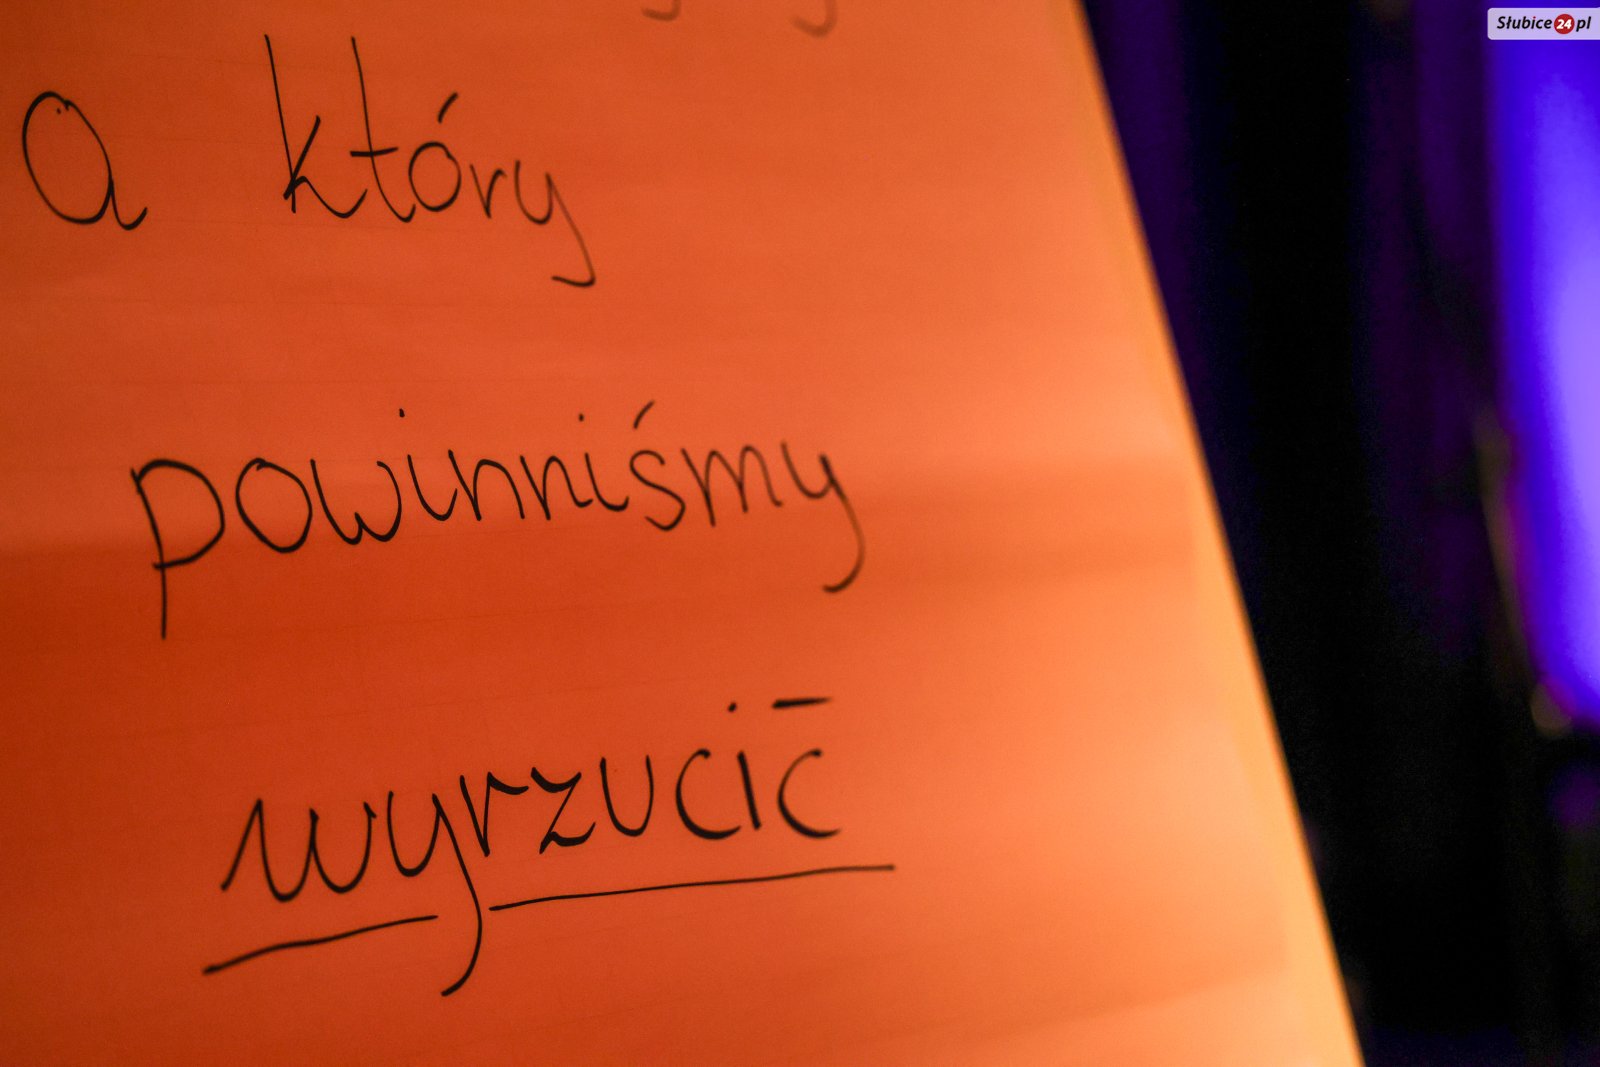 Słubice24.pl
a który
powinniśmy
wyrzucić